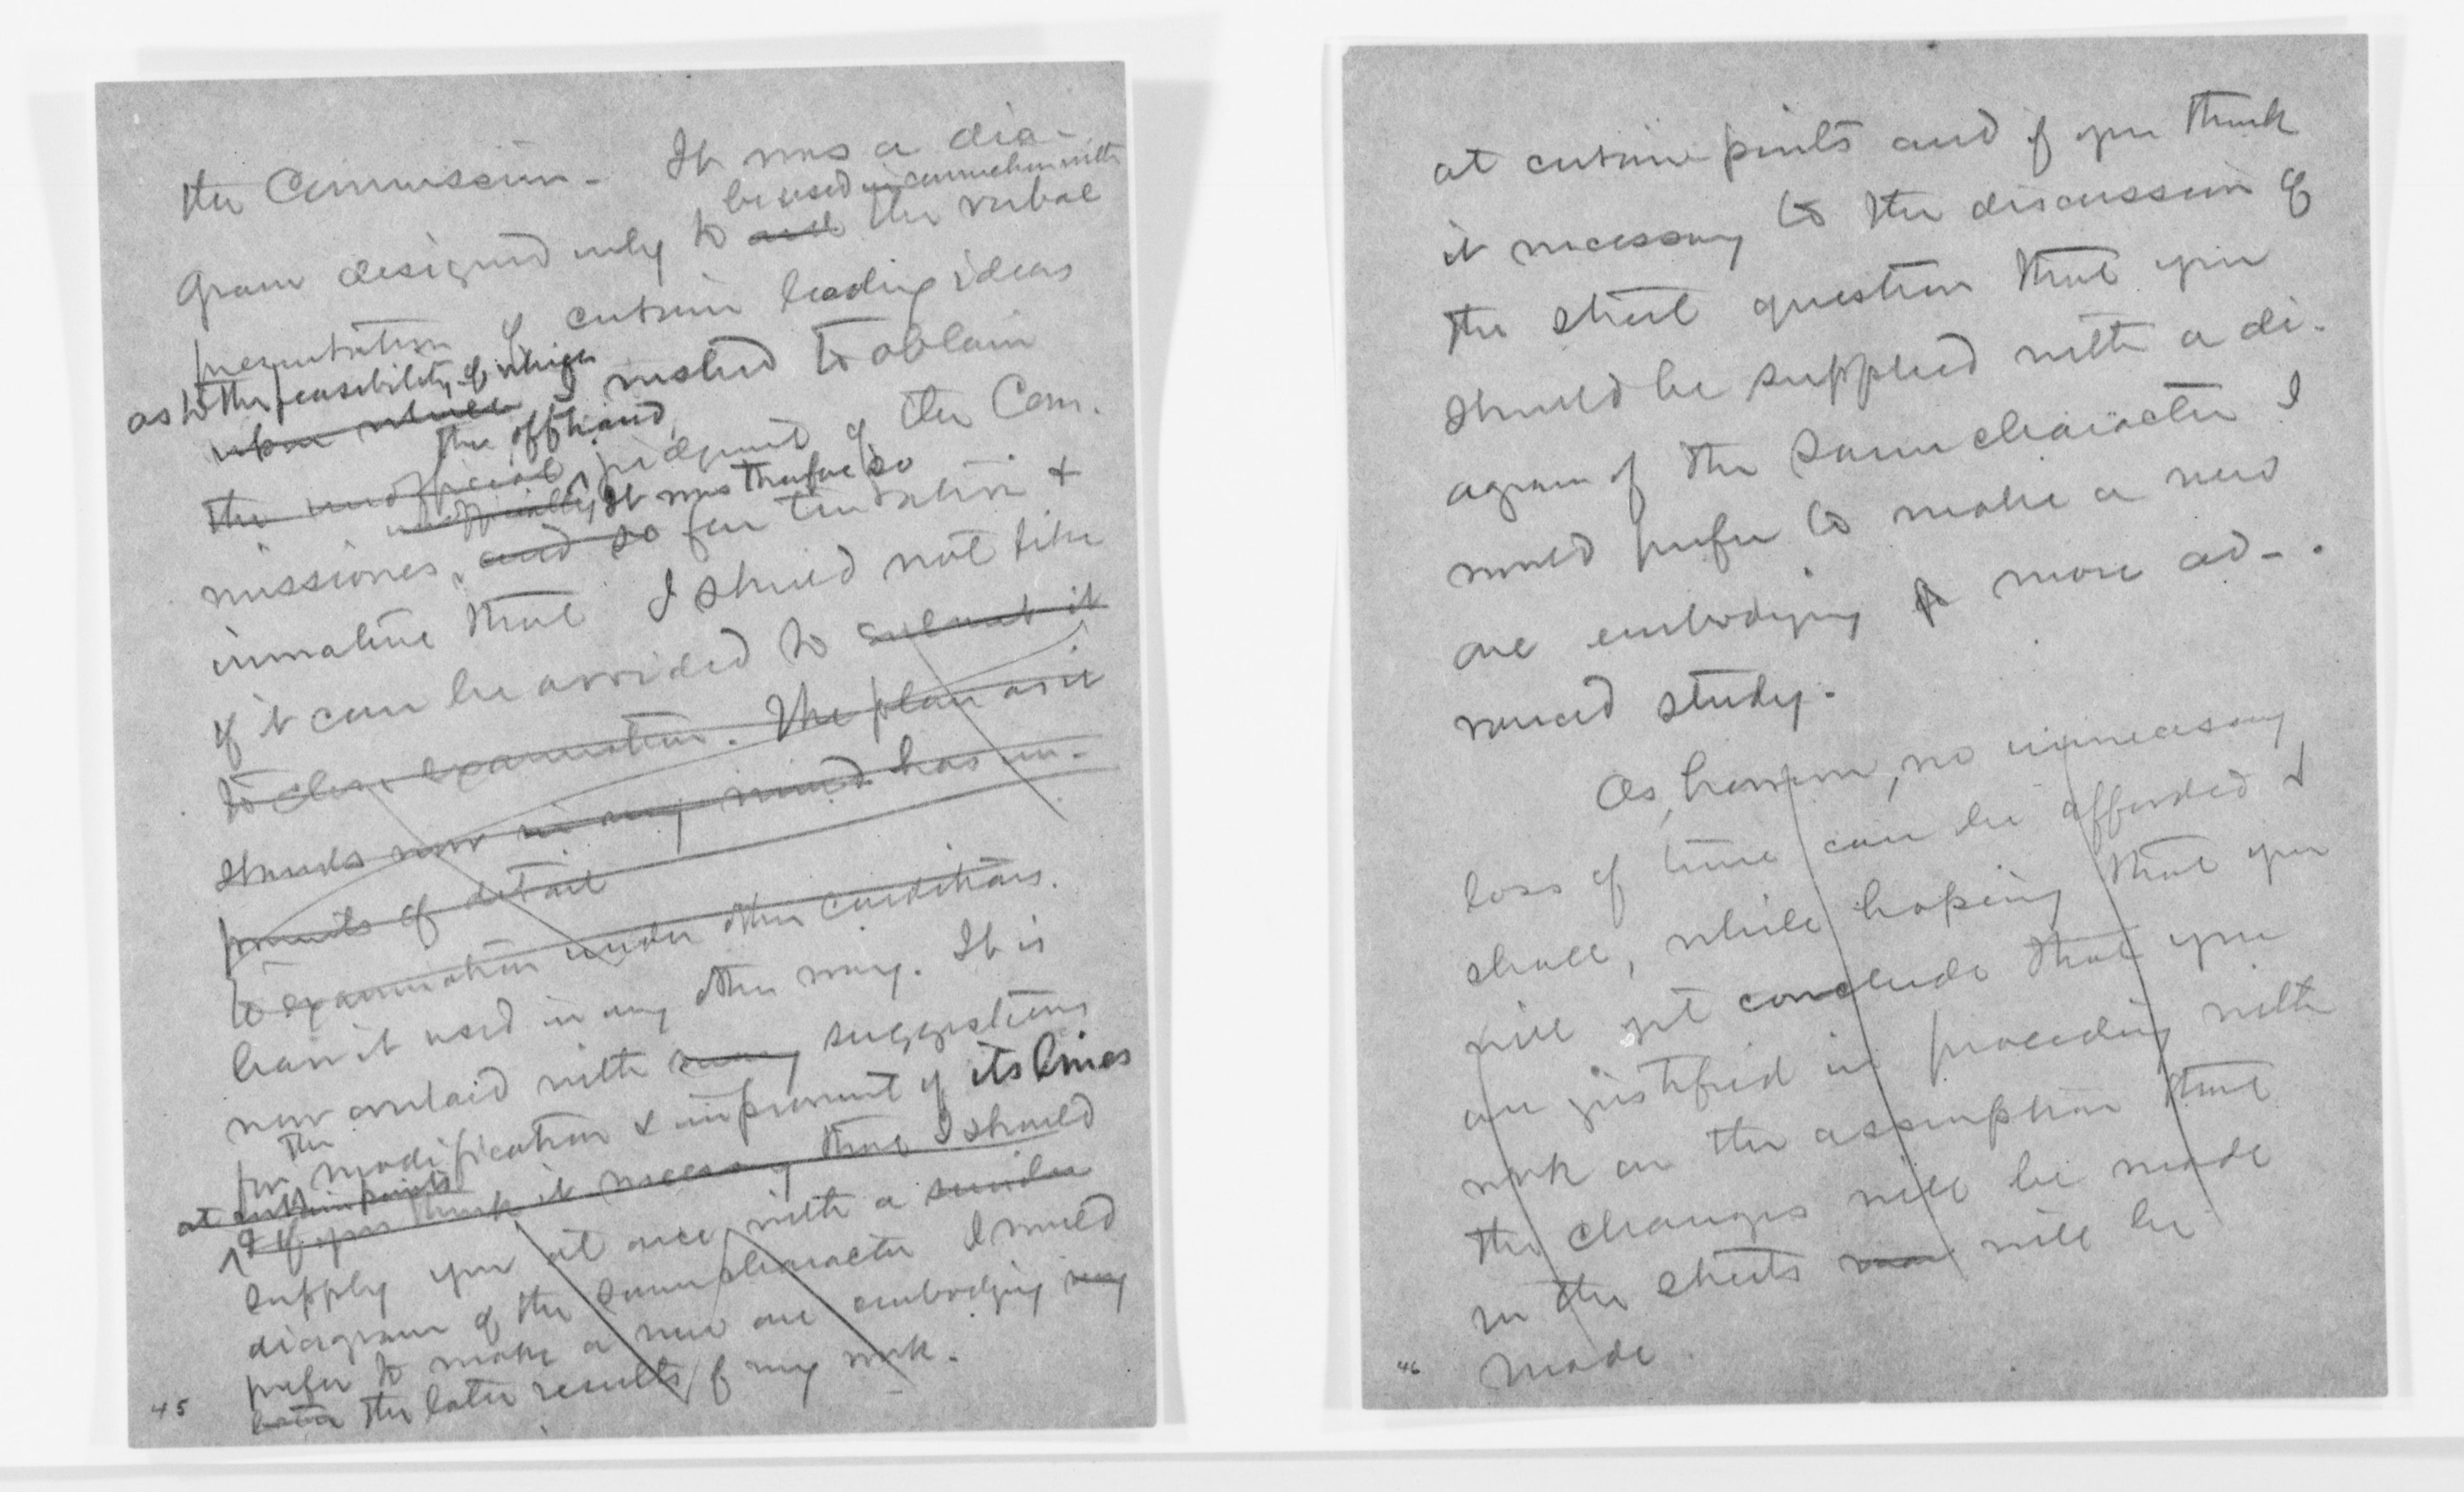 the Commission. It was a dia-
be used in connection with
gram designed only to aid the verbal
presentation of certain leading ideas
as to the feasibility of which
upon which I wished to obtain
the offhand
the unofficial judgment of the Com.
unofficially, It was therefore so
missioners, and so far tentative &
immature that I should not like
if it can be avoided to submit it
to close examination. The plan as it
stands now in my mind has im-
provements of detail
to examination under other conditions.
have it used in any other way. It is
now overlaid with many suggestions
the
for modification & improvement of its lines
at certain points
& If you think it necessary that I should
supply you at once with a similar
diagram of the same character I would
prefer to make a new one embodying my
the later results of my work.
45
at certain points and if you think
it necessary to the discussion of
the street question that you
should be supplied with a di-
agram of the same character I
would prefer to make a new
one embodying a more ad-
vanced study.
As, however, no unnecessary
loss of time can be afforded I
shall, while hoping that you
will yet conclude that you
are justified in proceeding with
work on the assumption that
the changes will be made
in the streets will be
made.
46